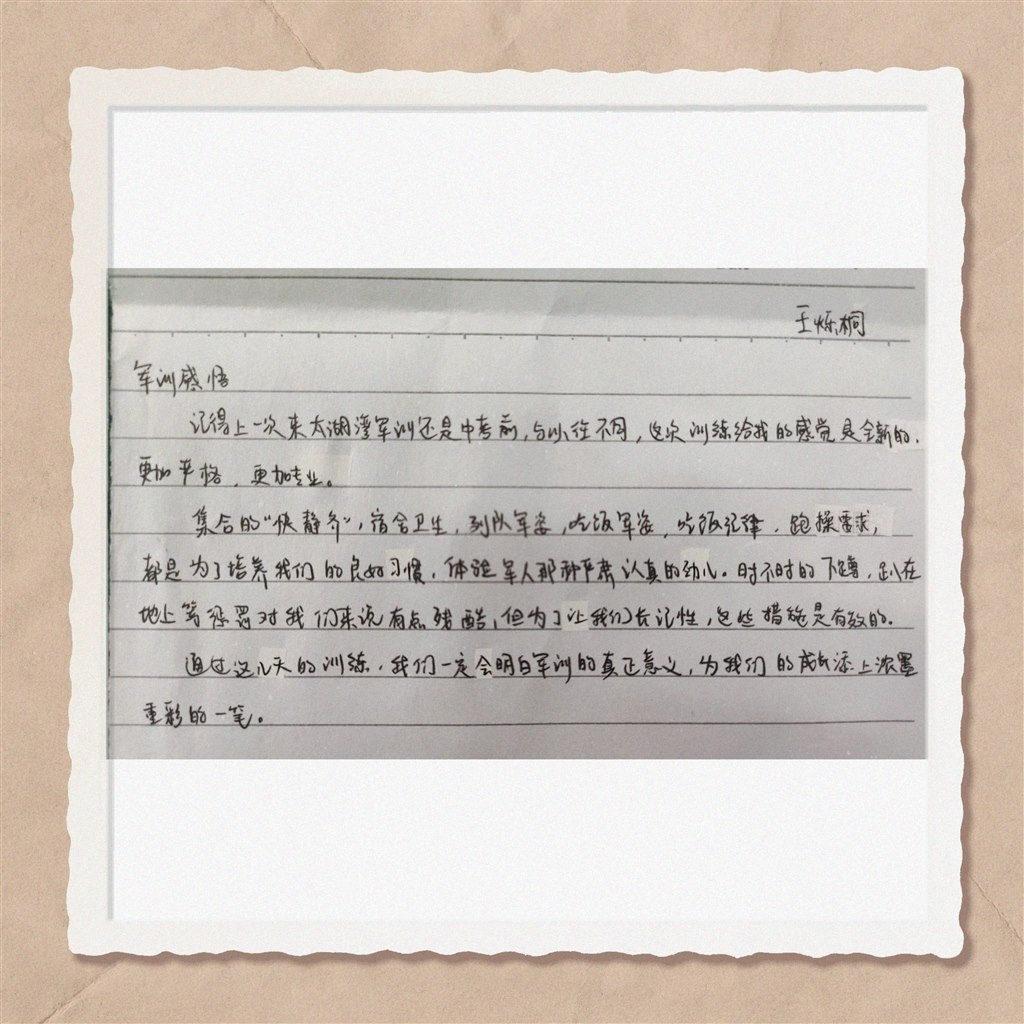 王烁桐
军训感悟
记得上一次来太湖湾军训还是中考前,与以往不同,这次训练给我的感觉是全新的,
更加严格,更加专业。
集合的“快静齐”,宿舍卫生,列队军姿,吃饭军姿,吃饭纪律,跑操需求,
都是为了培养我们的良好习惯,体验军人那种严肃认真的劲儿。时不时的下蹲,趴在
地上等惩罚对我们来说有点残酷,但为了让我们长记性,这些措施是有效的。
通过这几天的训练,我们一定会明白军训的真正意义,为我们的成长添上浓墨
重彩的一笔。